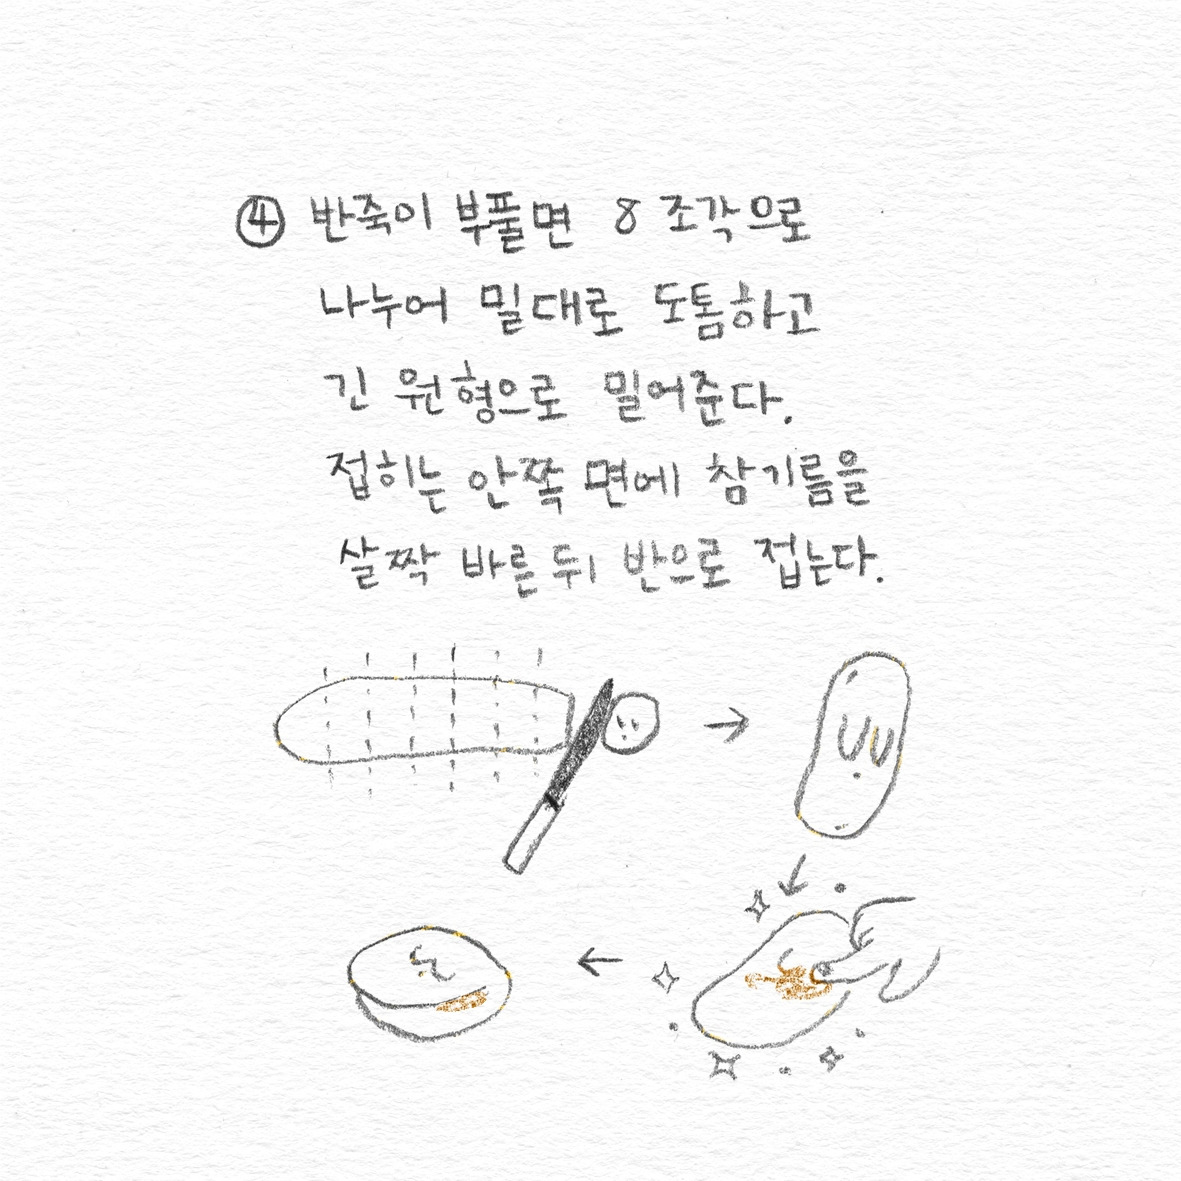 ④ 반죽이 부풀면 8 조각으로
나누어 밀대로 도톰하고
긴 원형으로 밀어준다.
접히는 안쪽 면에 참기름을
살짝 바른 뒤 반으로 접는다.